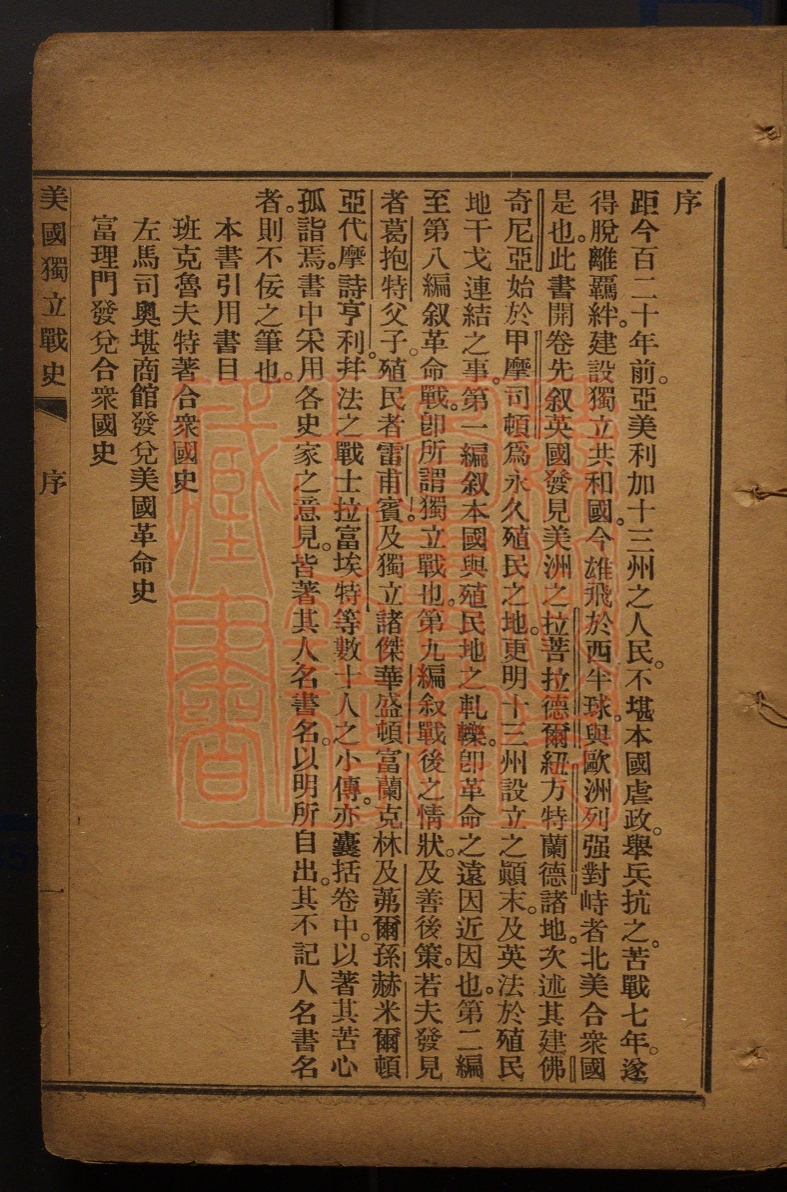 序
距今百二十年前。亞美利加十三州之人民。不堪本國虐政。舉兵抗之。苦戰七年。遂
得脫離羈絆。建設獨立共和國。今雄飛於西半球。與歐洲列强對峙者北美合衆國
是也。此書開卷先叙英國發見美洲之拉菩拉德爾紐方特蘭德諸地。次述其建佛
奇尼亞始於甲摩司頓爲永久殖民之地。更明十三州設立之顚末。及英法於殖民
地干戈連結之事。第一編叙本國與殖民地之軋轢。卽革命之遠因近因也。第二編
至第八編叙革命戰。卽所謂獨立戰也。第九編叙戰後之情狀。及善後策。若夫發見
者葛抱特父子。殖民者雷甫賓。及獨立諸傑華盛頓富蘭克林及苐爾孫赫米爾頓
亞代摩詩亨利。幷法之戰士拉富埃特等數十人之小傳。亦囊括卷中。以著其苦心
孤詣焉。書中采用各史家之意見。皆著其人名書名。以明所自出。其不記人名書名
者。則不佞之筆也。
本書引用書目
班克魯夫特著合衆國史
左馬司奧堪商館發兌美國革命史
富理門發兌合衆國史
美國獨立戰史 序 一